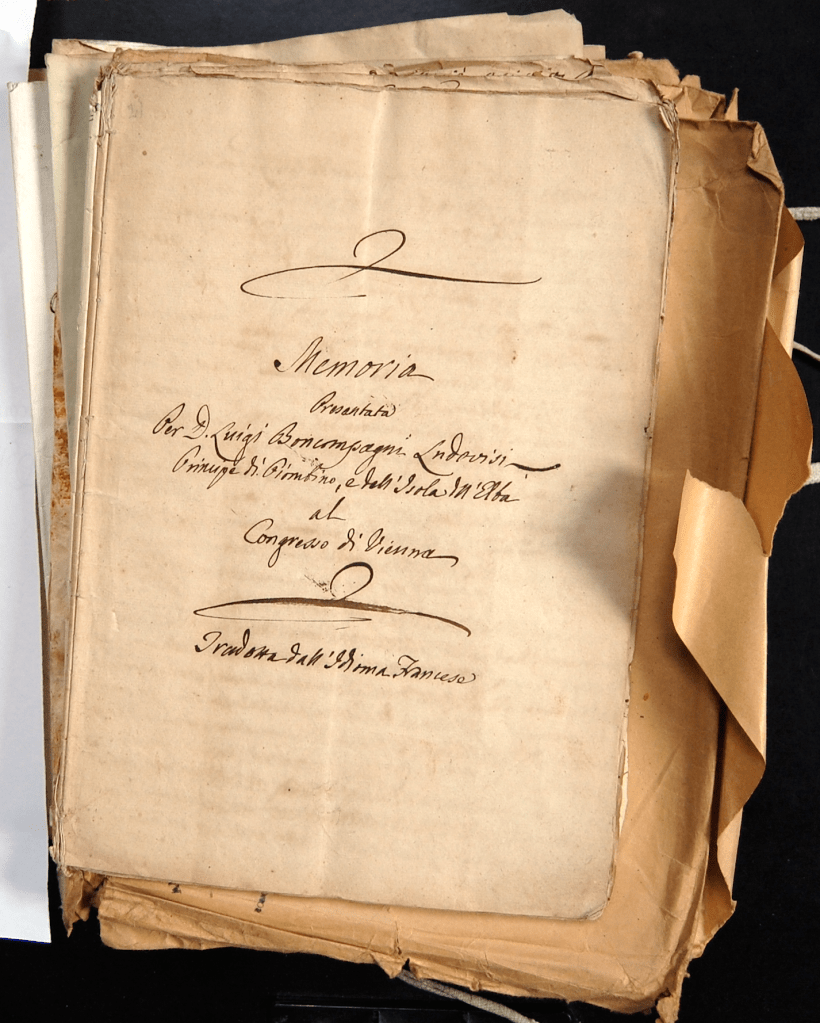 Memoria
Presentata
Per D. Luigi Boncompagni Ludovisi
Principe di Piombino, e dell'Isola dell'Elba
al
Congresso di Vienna
Tradotta dall'Idioma Francese